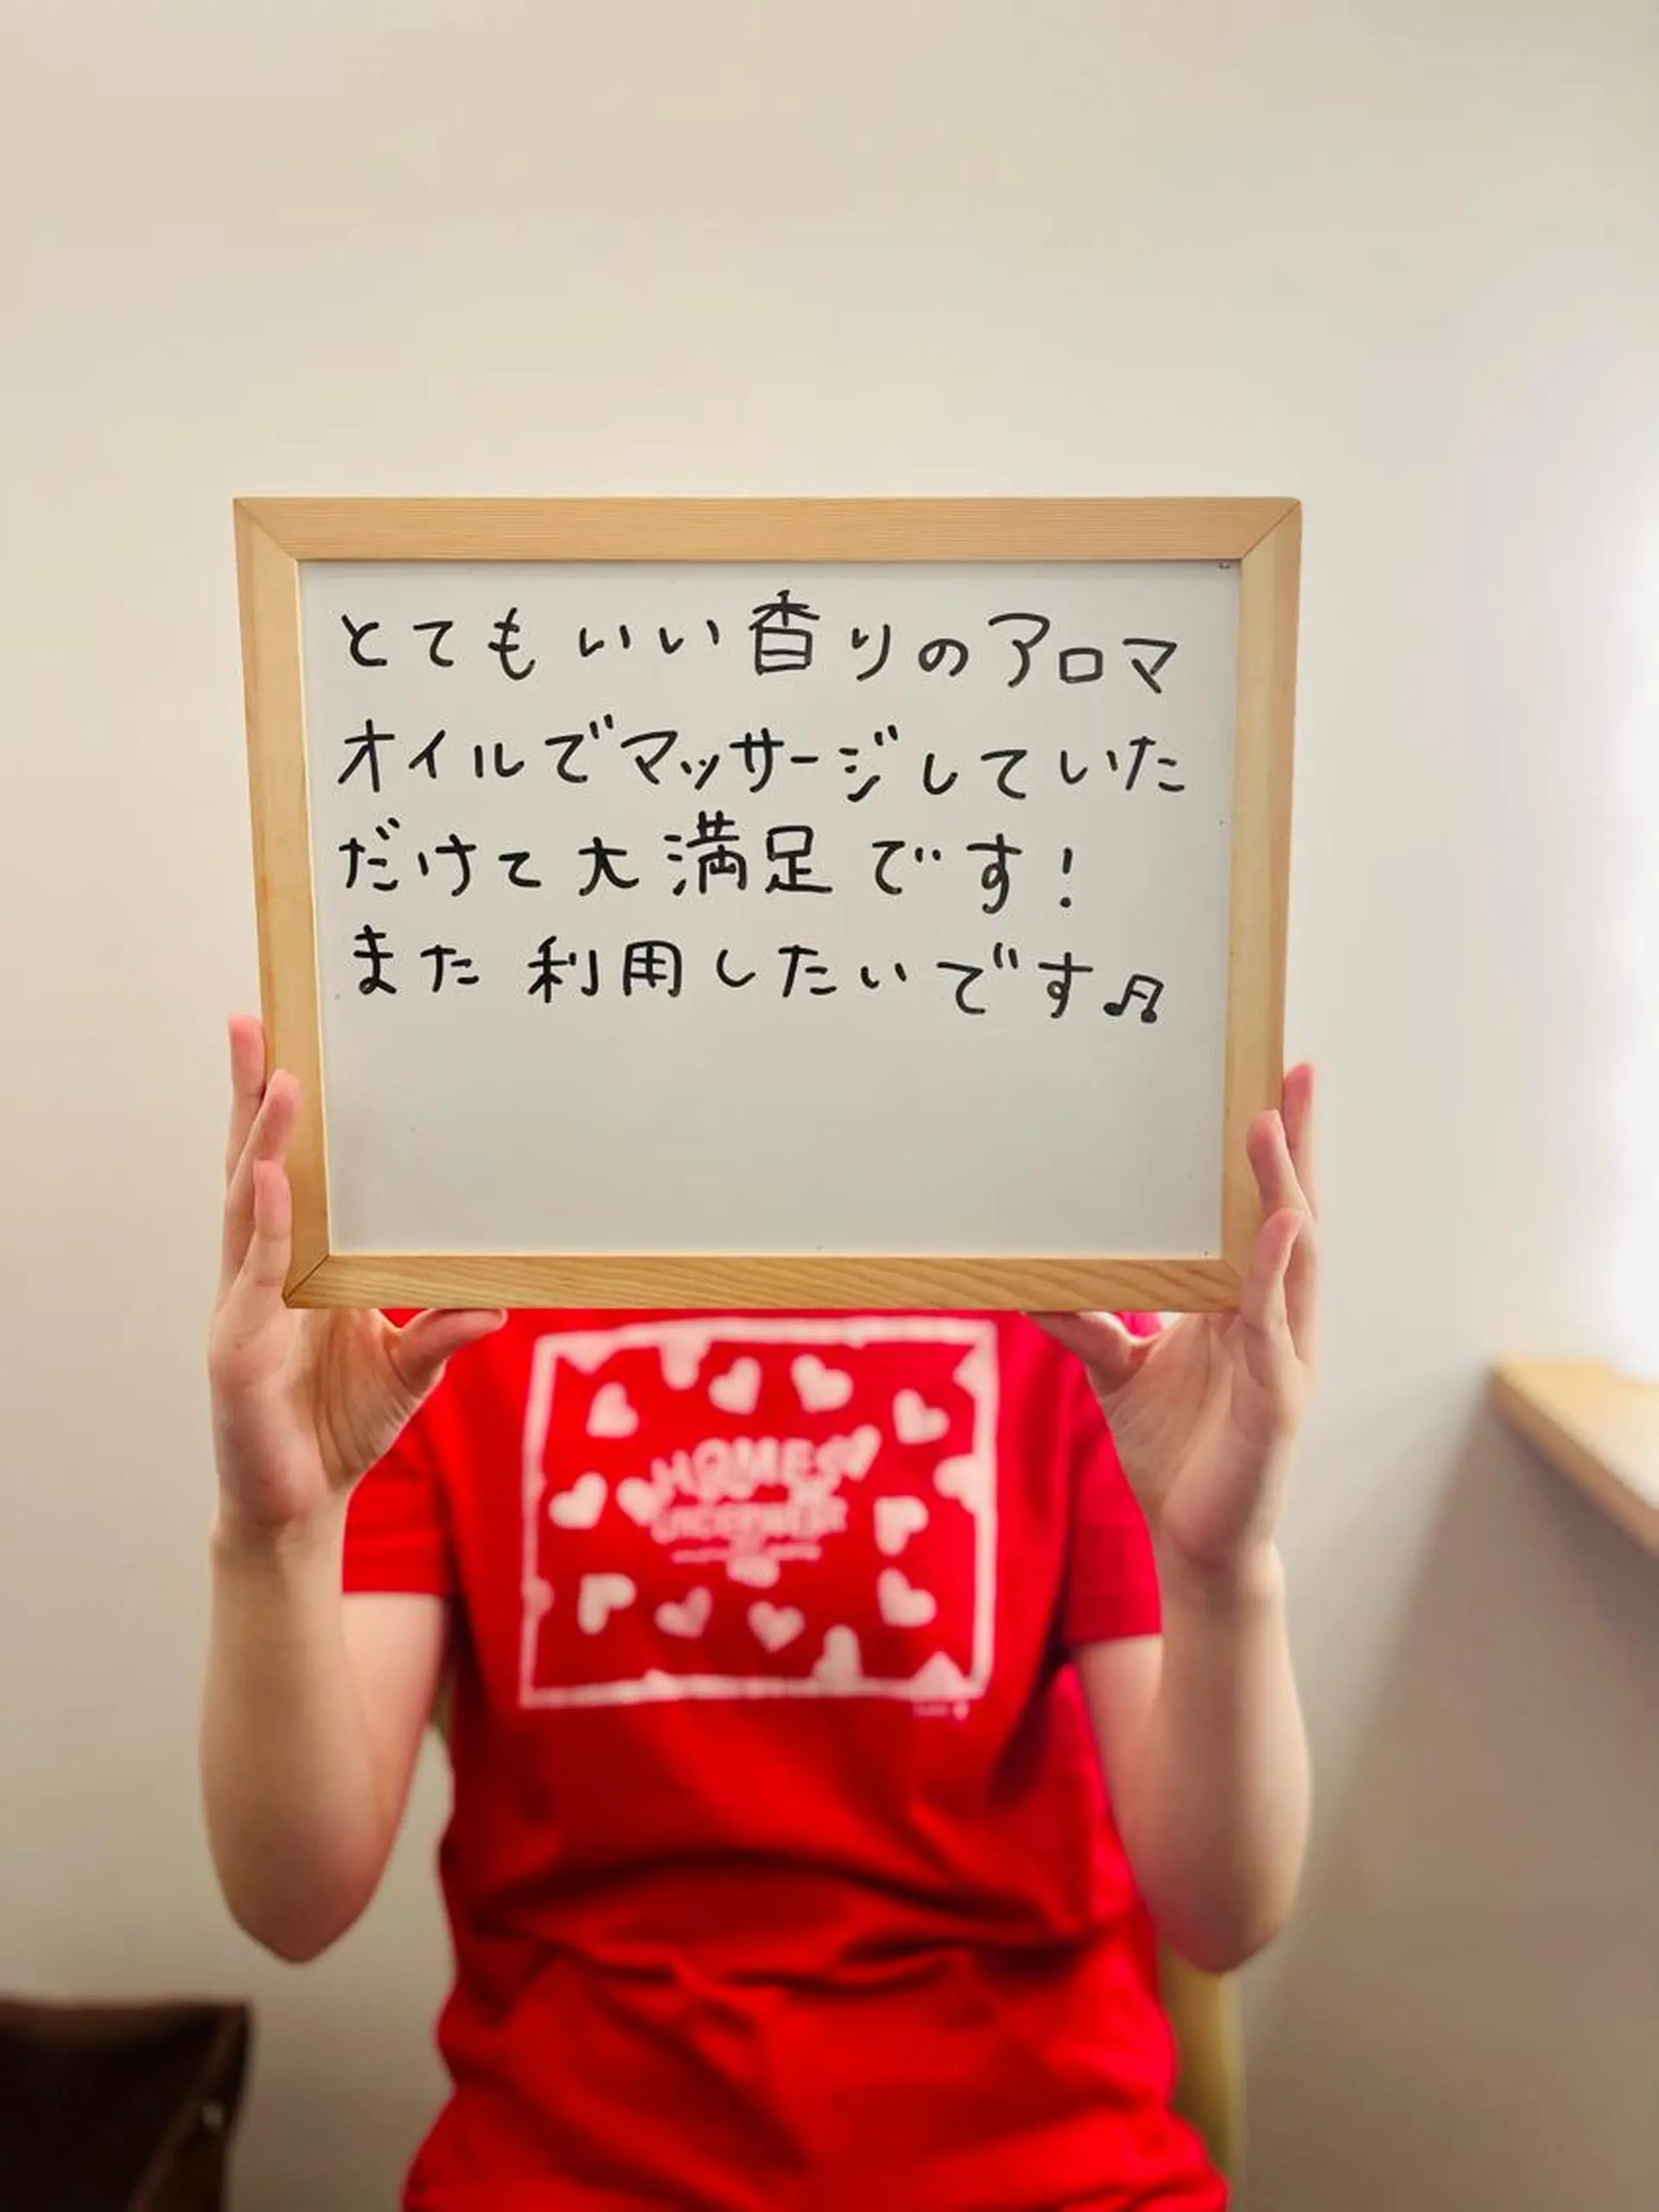 とてもいい香りのアロマ
オイルでマッサージしていた
だけて大満足です!
また利用したいです♫
HOMES